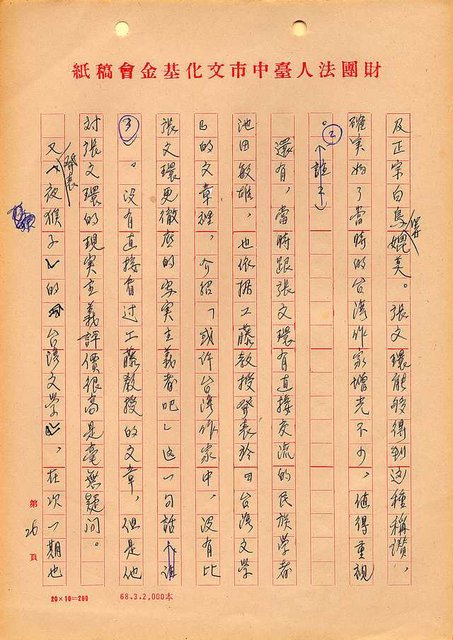 財團法人臺中市文化基金會稿紙
及正宗白鳥媲美。張文環能夠得到這種稱讚，
確實為了當時的台灣作家增光不少，值得重視
。②
還有，當時跟張文環有直接交流的民族學者
池田敏雄，也依據工藤教授發表於『台灣文學
』的文章裡，介紹「或許台灣作家中，沒有比
張文環更徹底的寫實主義者吧」這一句話
③。沒有直接看过工藤教授的文章，但是他
對張文環的現実主義評價很高是毫無疑問。
又發表夜猴子的台湾文学，在次一期也
第26頁
20×10=200
68.3.2,000本